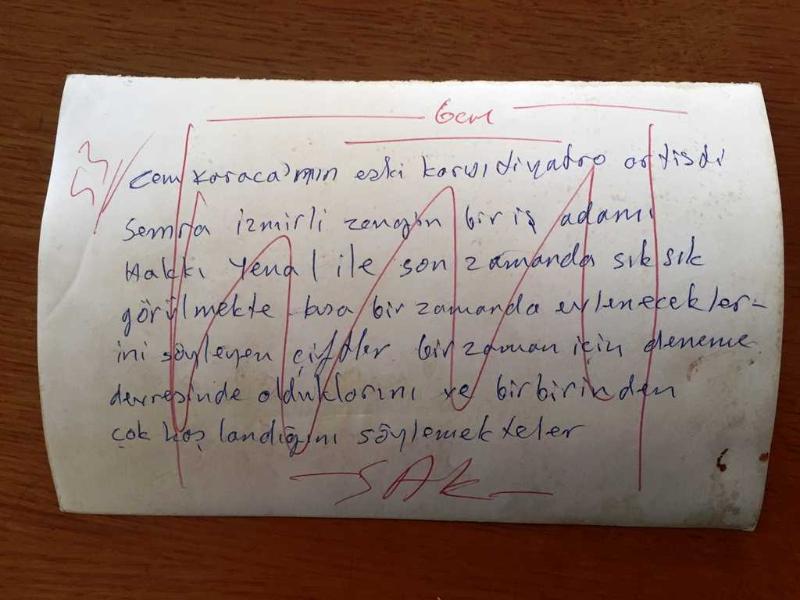 Cem Karaca'nın eski karısı tiyatro artisdi
Semra izmirli zengin bir iş adamı
Hakkı Yenal ile son zamanda sık sık
görülmekte kısa bir zamanda evlenecekler-
ini söyleyen çiftler bir zaman için deneme
devresinde olduklarını ve birbirinden
çok hoşlandığını söylemekteler
-SAK-